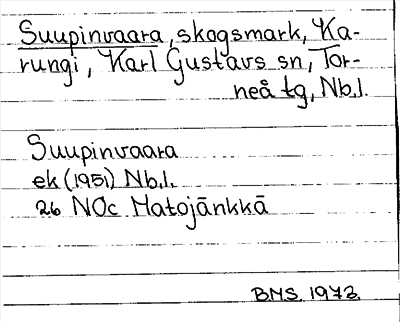 Suupinvaara, skogsmark, Ka-
rungi, Karl Gustavs sn, Tor-
neå tg, Nb.l.
Suupinvaara
ek (1951) Nb.l.
26 NOc Matojänkkä
BMS. 1973.